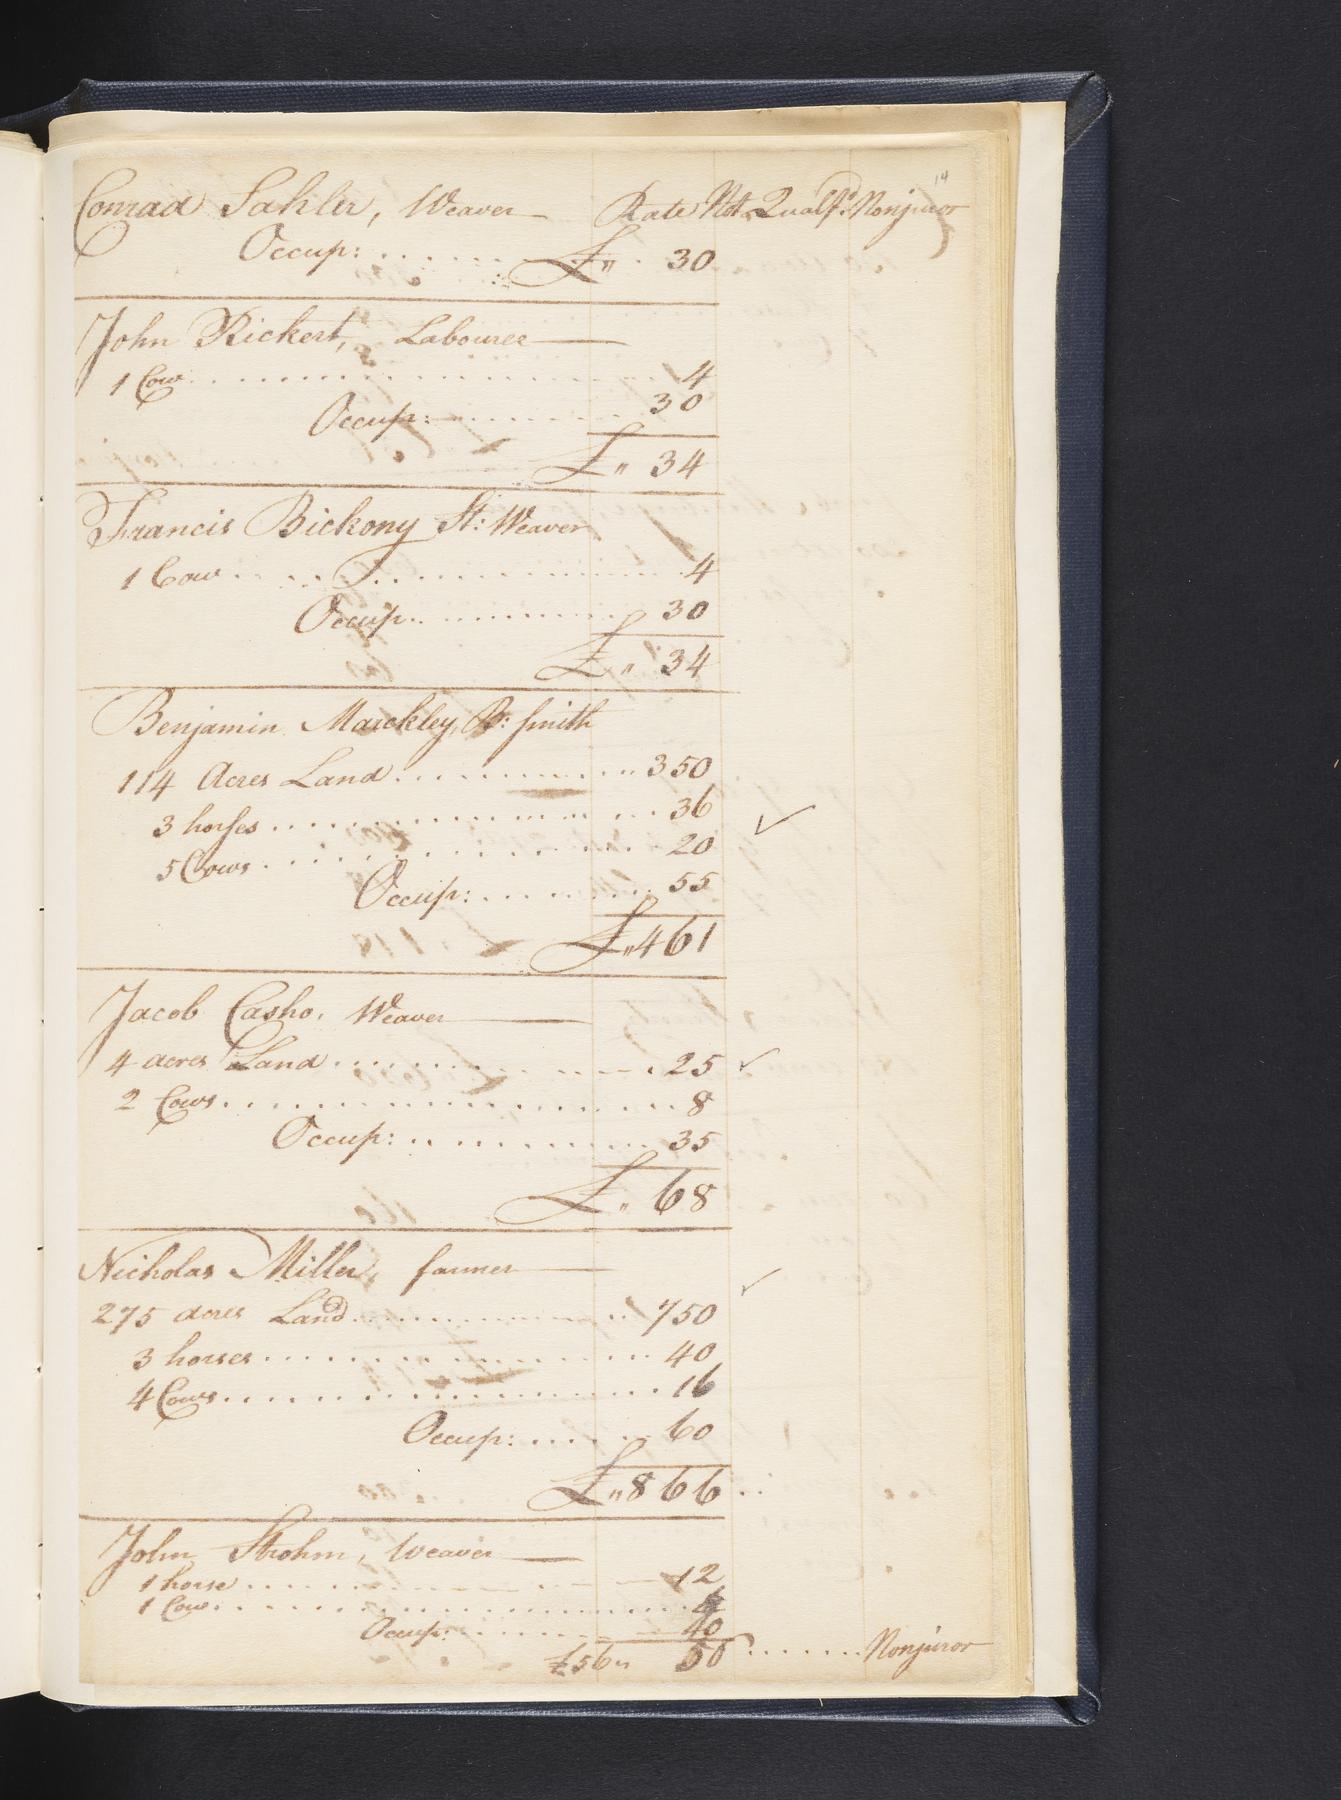 14
Conrad Sahler, Weaver Rate Not Qualf.d Nonjuror
Occup: £ " 30
John Rickert, Labourer
1 Cow 4
Occup: 30
£ " 34
Francis Bickony St: Weaver
1 Cow 4
Occup: 30
£ " 34
Benjamin Marckley, B: smith
114 Acres Land 350
3 horses 36
5 Cows 20
Occup: 55
£ " 461
Jacob Casho, Weaver
4 acres Land 25
2 Cows 8
Occup: 35
£ " 68
Nicholas Miller, farmer
275 acres Land 750
3 horses 40
4 Cows 16
Occup: 60
£ " 866
John Strohm, Weaver
1 horse 12
1 Cow 4
Occup: 40
£56 " Nonjuror